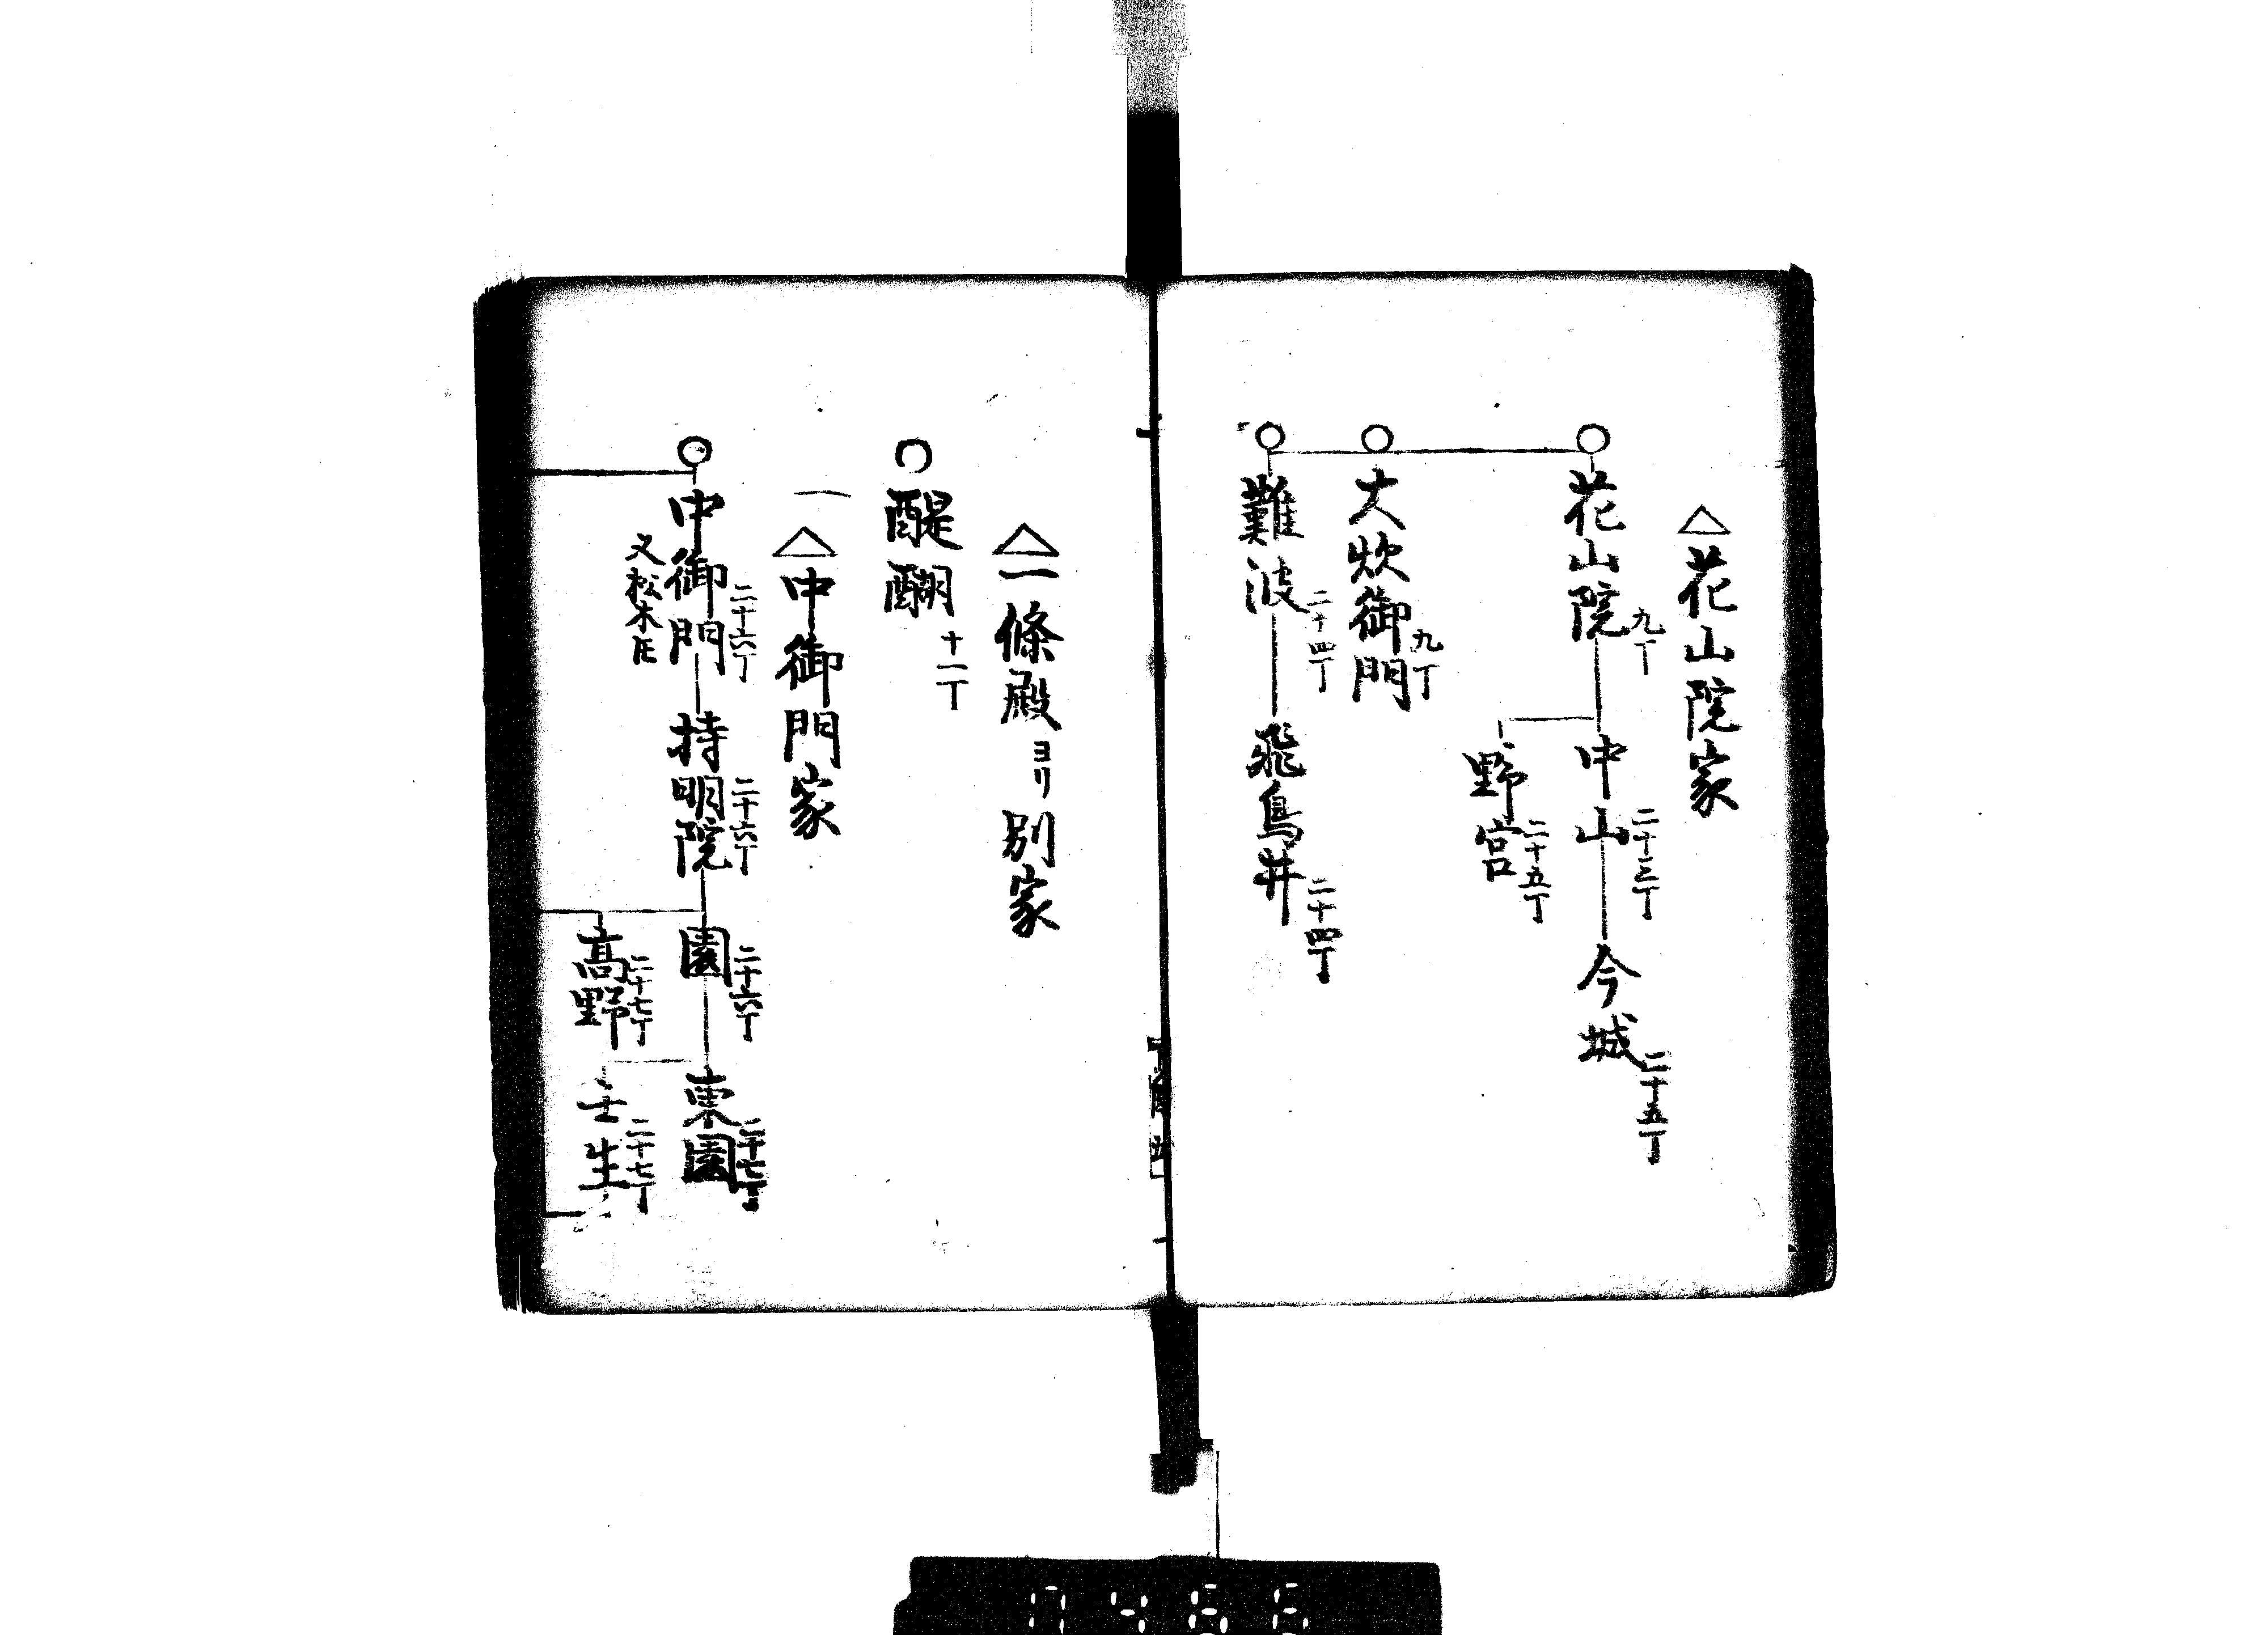 △花山院家
花山院 九丁
中山 二十三丁
今城 二十五丁
野宮 二十五丁
大炊御門 九丁
難波 二十四丁
飛鳥井 二十四丁
△一條殿ヨリ別家
醍醐 十一丁
△中御門家
中御門 二十六丁
又松木トモ
持明院 二十六丁
園 二十六丁
東園 二十七丁
高野 二十七丁
壬生 二十七丁